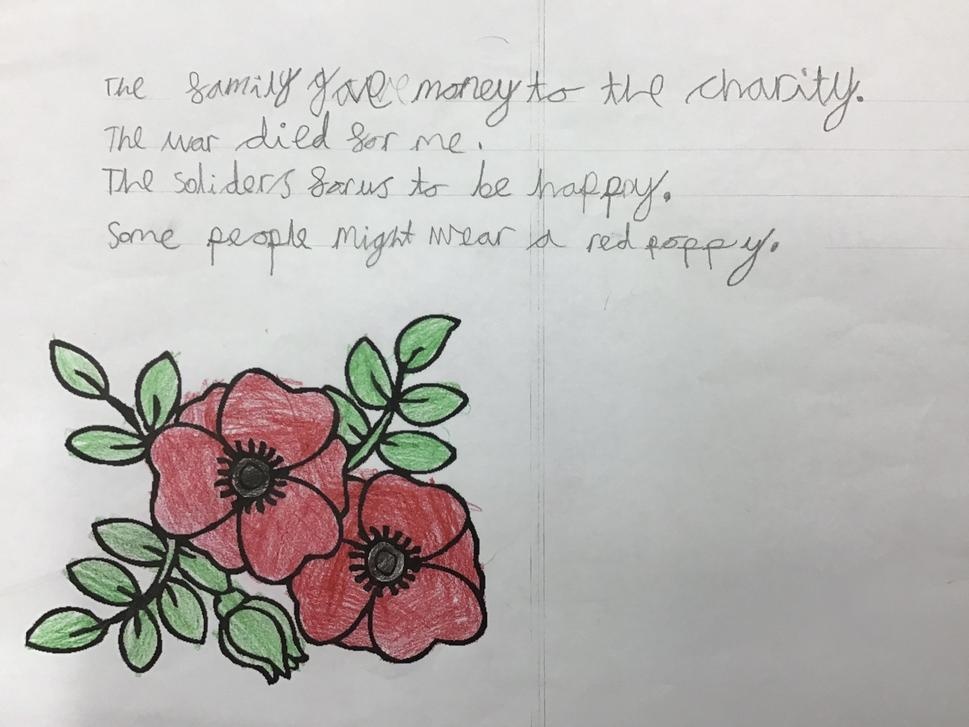 The family gave money to the charity.
The war died for me.
The soliders forus to be happy.
Some people might wear a red poppy.